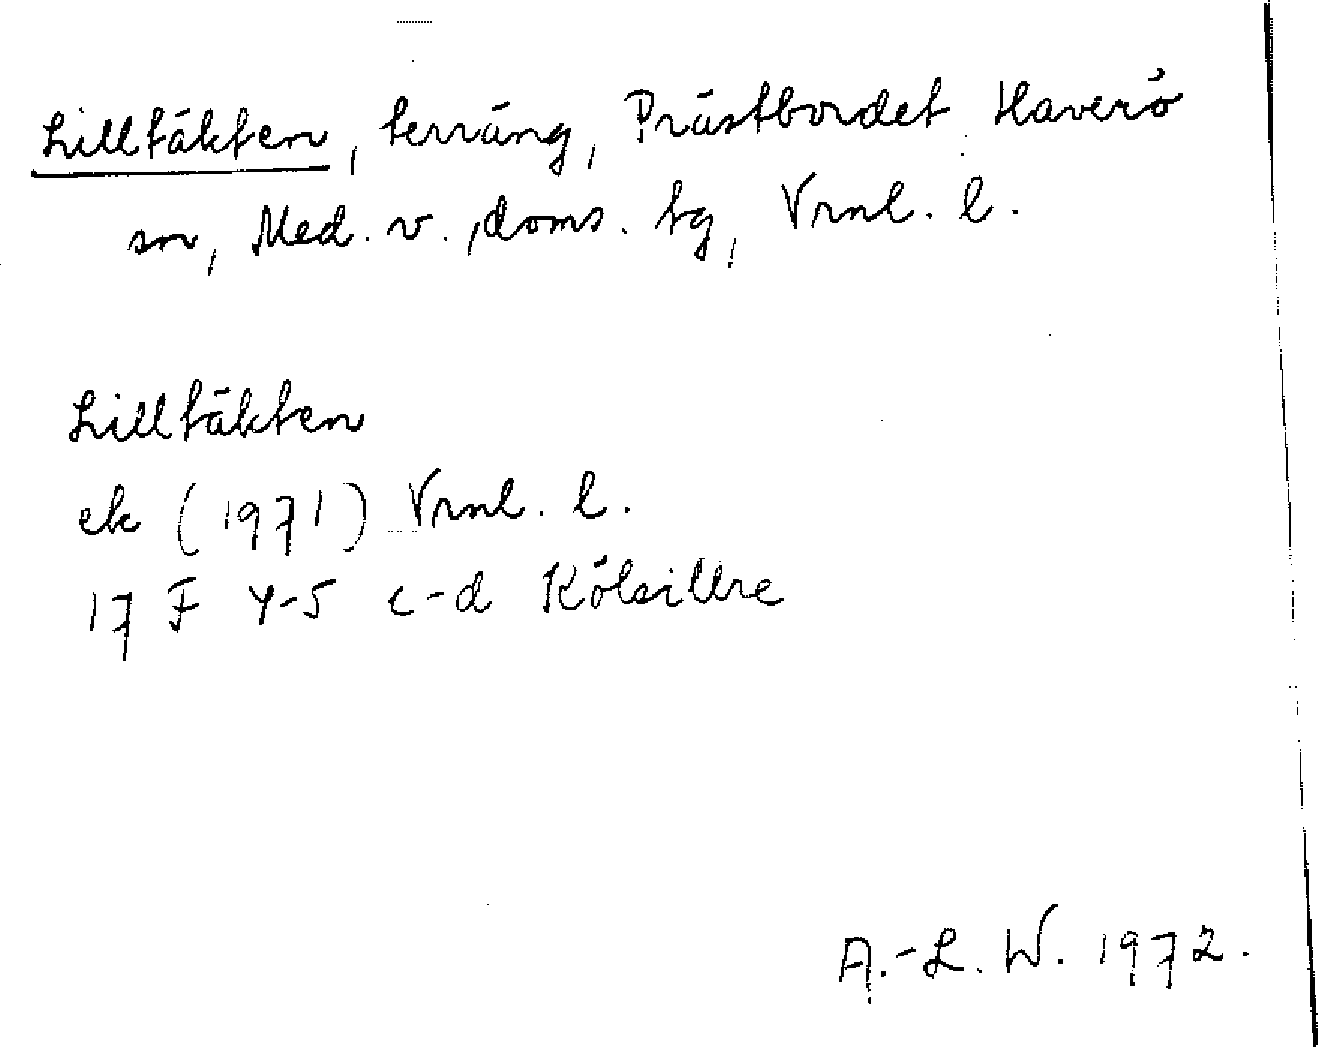 Lilltäkten, terräng, Prästbordet Haverö
sn, Med. v. doms. tg, Vrnl. l.
Lilltäkten
ek (1971) Vrnl. l.
17 F 4-5 c-d Kölsillre
A.-L. W. 1972.